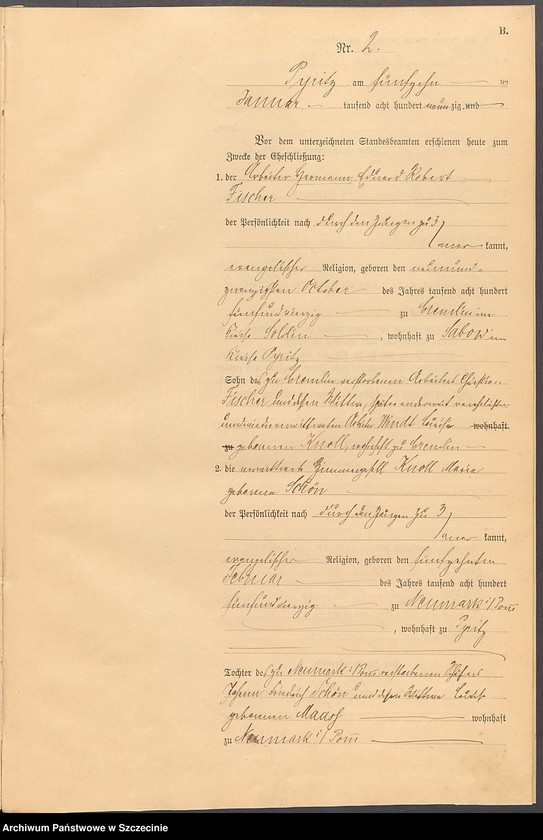 B.
Nr. 2.
Pyritz am fünfzehn ten
Januar tausend acht hundert neunzig und
Vor dem unterzeichneten Standesbeamten erschienen heute zum
Zwecke der Eheschließung:
1. der Arbeiter Hermann Eduard Robert
Fischer
der Persönlichkeit nach durch den Zeugen zu 3
aner kannt,
evangelischer Religion, geboren den neunund-
zwanzigsten October des Jahres tausend acht hundert
fünfundvierzig zu Cremlin im
Kreise Soldin, wohnhaft zu Sabow im
Kreise Pyritz
Sohn des zu Cremlin verstorbenen Arbeiters Christian
Fischer und dessen Wittwe, später anderweit verehelichten
und wieder verwittweten Wendt Louise wohnhaft
zu geborenen Knoll, wohnhaft zu Cremlin
2. die verwittwete Knoll Maria
geborene Schön
der Persönlichkeit nach durch den Zeugen zu 3
aner kannt,
evangelischer Religion, geboren den fünfzehnten
Februar des Jahres tausend acht hundert
fünfundvierzig zu Neumark i/Pom
, wohnhaft zu Pyritz
Tochter des zu Neumark i/Pom verstorbenen Schäfers
Johann Friedrich Schön und dessen Wittwe Louise
geborenen wohnhaft
zu Neumark i/Pom
Archiwum Państwowe w Szczecinie